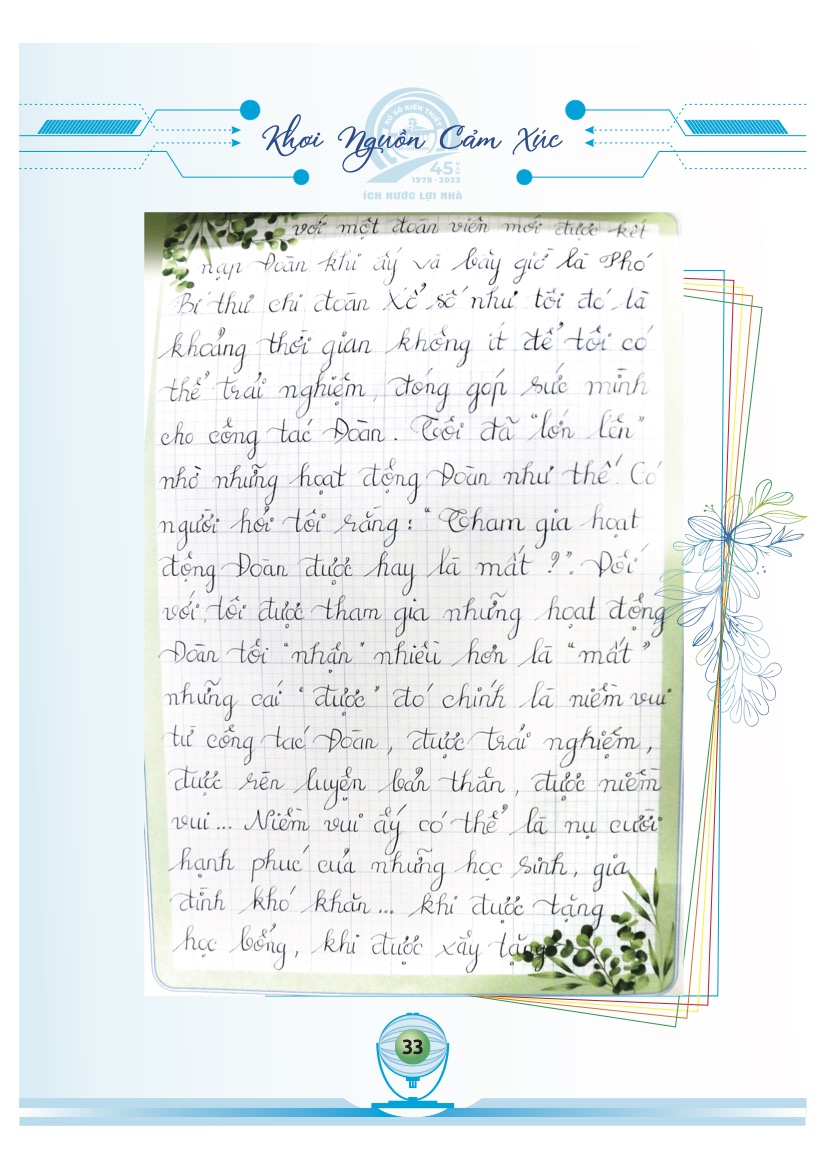 XỔ SỐ KIẾN THIẾT
Khơi Nguồn Cảm Xúc
45 NĂM
1978 - 2023
ÍCH NƯỚC LỢI NHÀ
với một đoàn viên mới được kết
nạp Đoàn khi ấy và bây giờ là Phó
Bí thư chi đoàn Xổ số như tôi đó là
khoảng thời gian không ít để tôi có
thể trải nghiệm, đóng góp sức mình
cho công tác Đoàn. Tôi đã "lớn lên"
nhờ những hoạt động Đoàn như thế. Có
người hỏi tôi rằng: "Tham gia hoạt
động Đoàn được hay là mất ?". Đối
với tôi được tham gia những hoạt động
Đoàn tôi "nhận" nhiều hơn là "mất"
những cái "được" đó chính là niềm vui
từ công tác Đoàn, được trải nghiệm,
được rèn luyện bản thân, được niềm
vui... Niềm vui ấy có thể là nụ cười
hạnh phúc của những học sinh, gia
đình khó khăn... khi được tặng
học bổng, khi được xây tặng
33